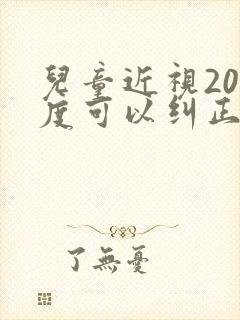 兒童近視20
度可以纠正
了無憂